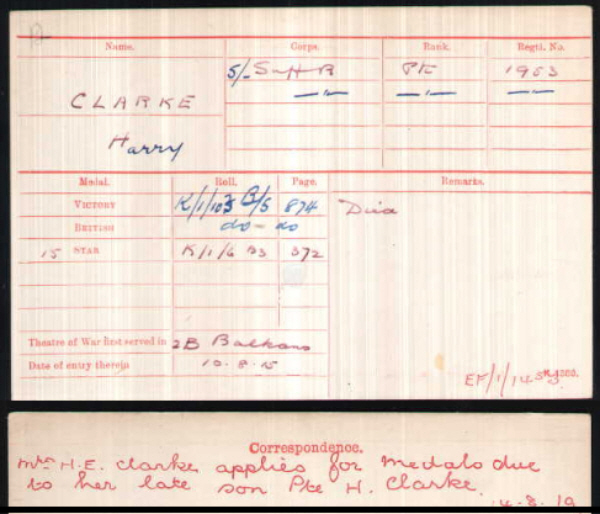 Name. Corps. Rank. Regtl. No.
5/- S-H-R Pte 1953
CLARKE —"— —"— —"—
Harry
Medal. Roll. Page. Remarks.
VICTORY K/1/103 B/5 874 Died
BRITISH do - do
15 STAR K/1/6 B3 372
Theatre of War first served in 2B Balkans
Date of entry therein 10.8.15
EF/1/14
Correspondence.
Mrs H.E. Clarke applies for medals due
to her late son Pte H. Clarke.
4.8.19